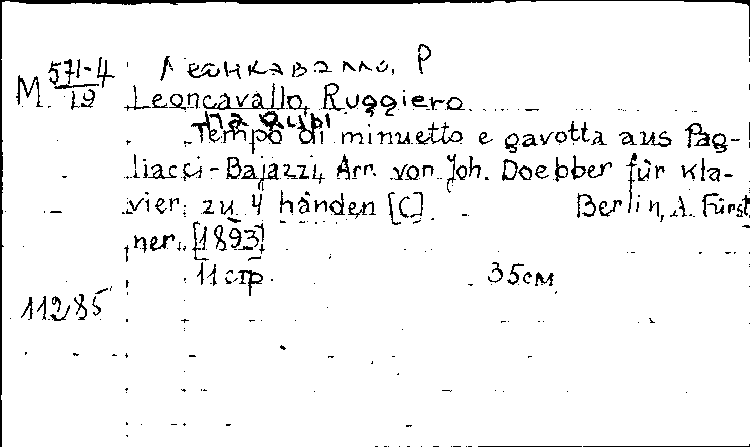 Леонкавалло, Р
М 571-4/19
Leoncavallo, Ruggiero
Паяцы
Tempo di minuetto e gavotta aus Pag-
liacci-Bajazzi, Arr. von Joh. Doebber für Kla-
vier zu 4 händen [C] Berlin, A. Fürst
ner. [1893]
11 стр. 35см
112/85